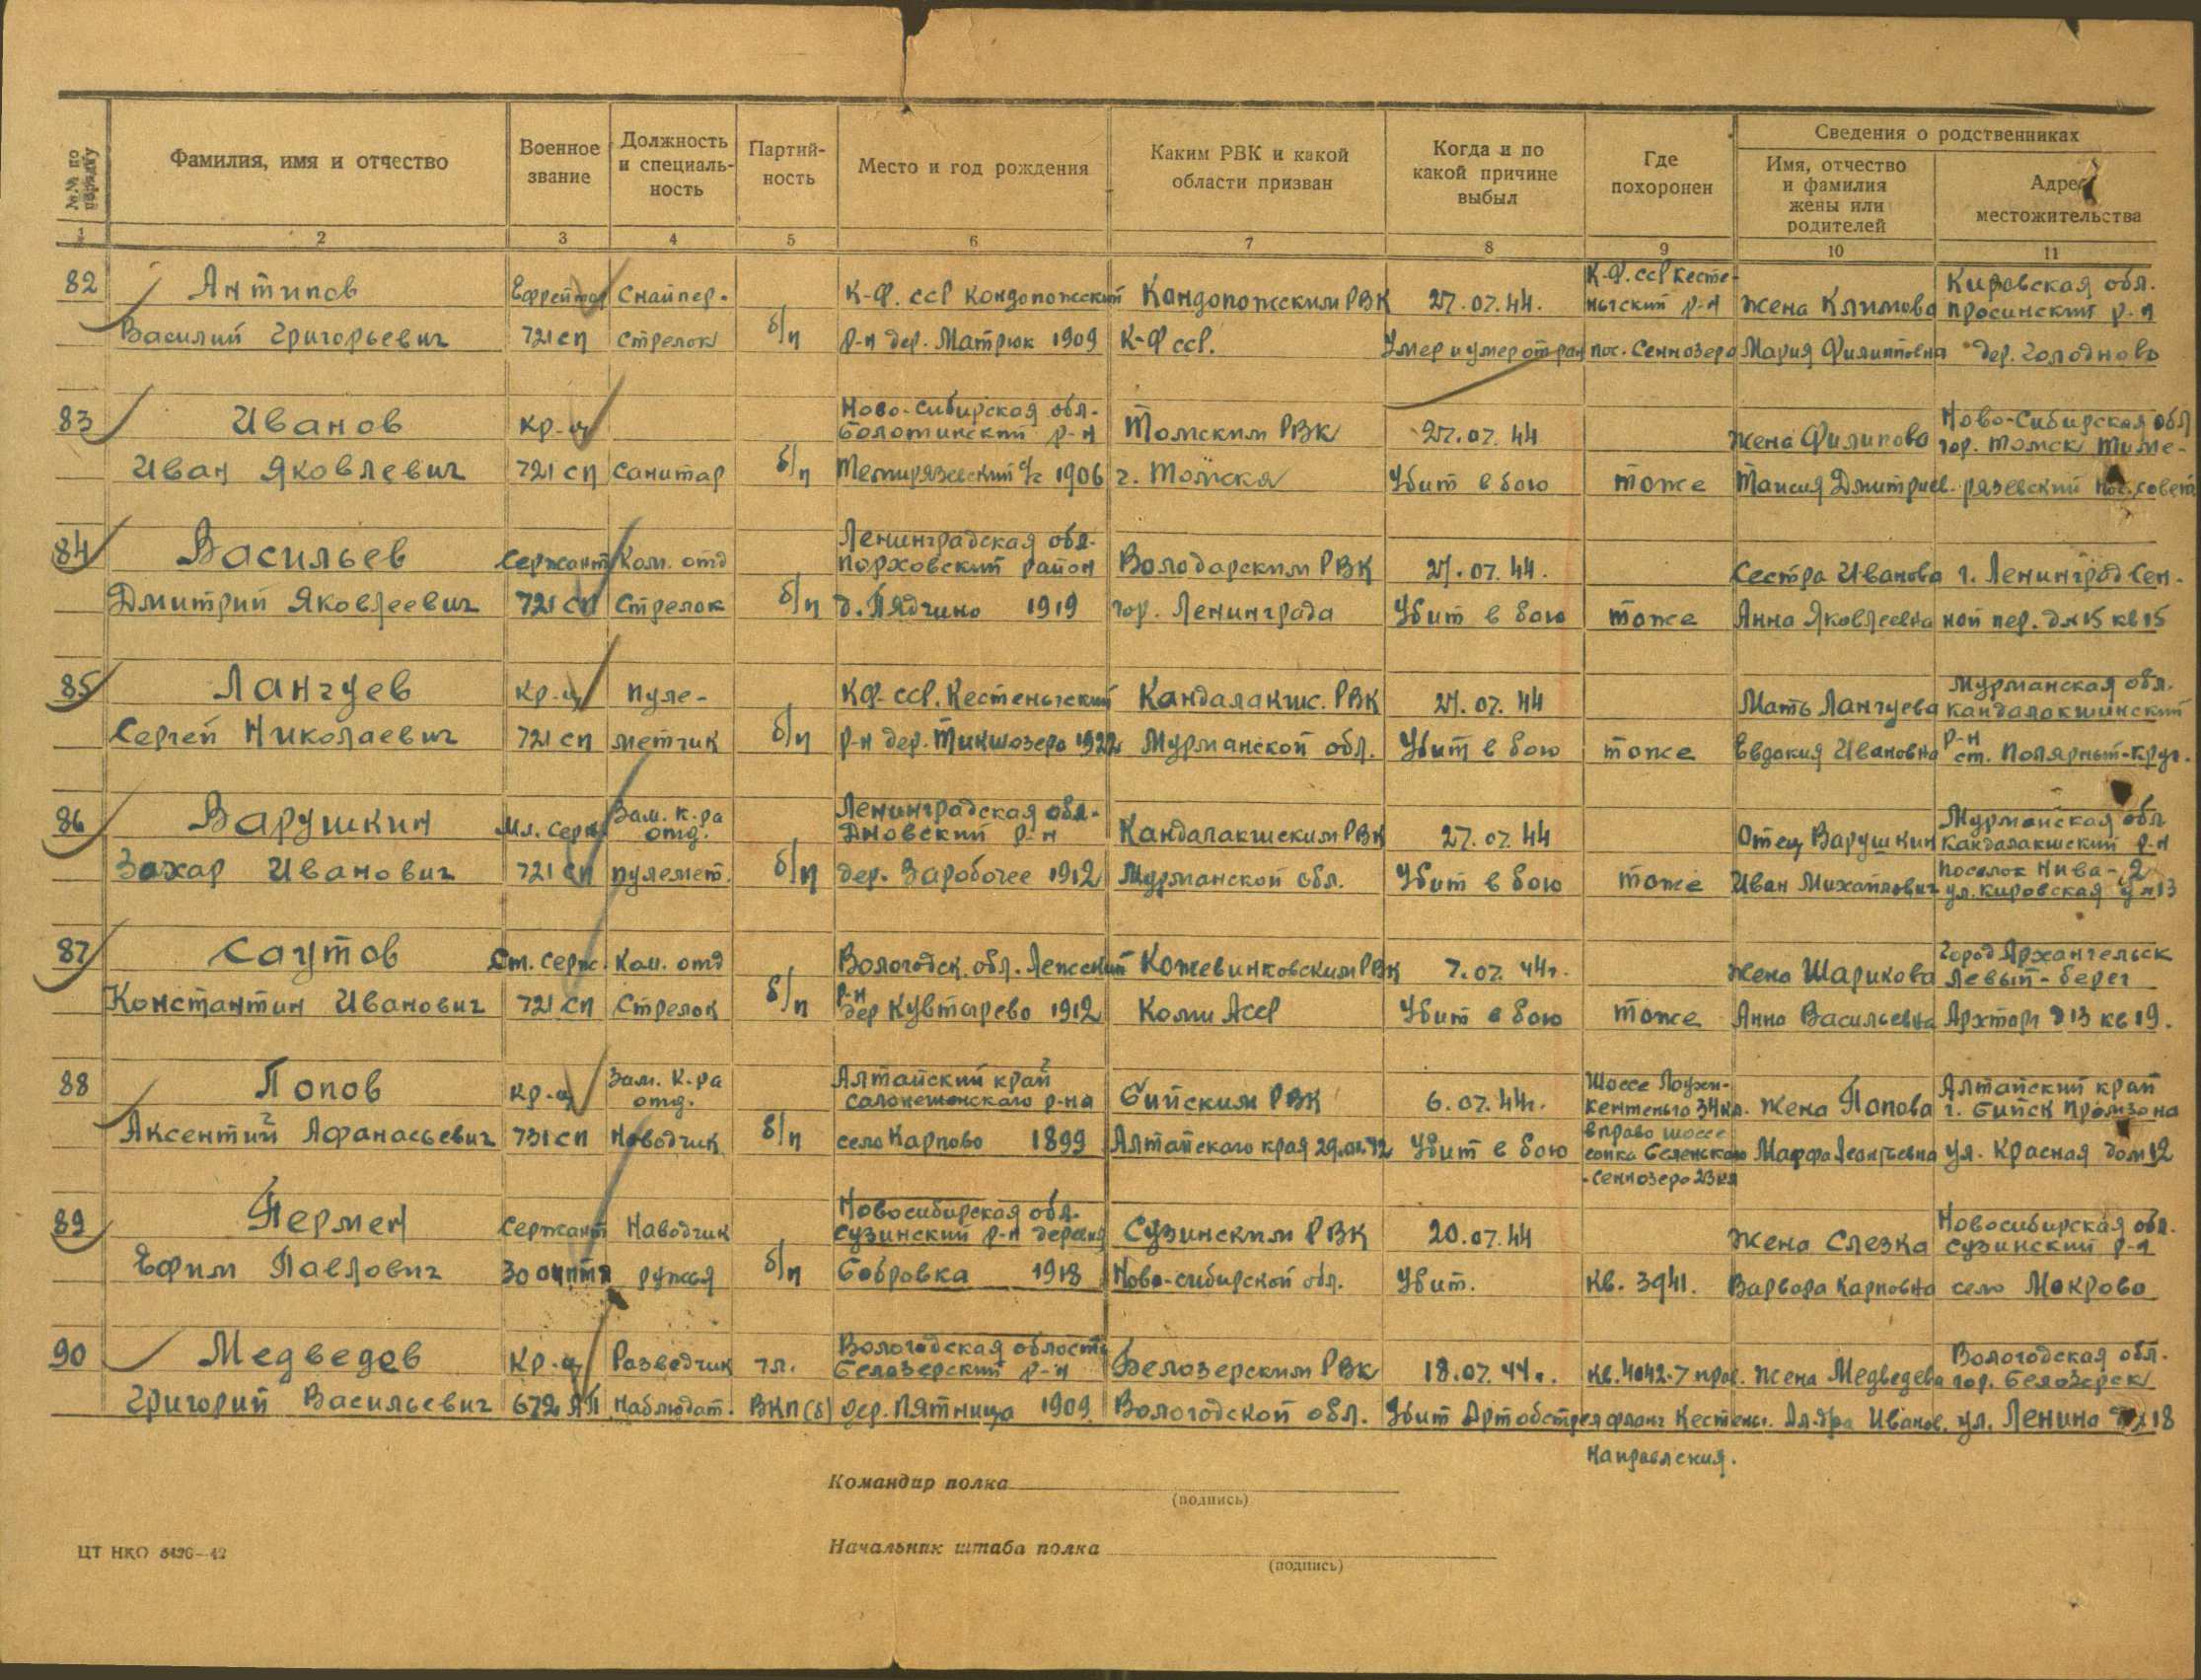 №№ по порядку
Фамилия, имя и отчество
Военное звание
Должность и специаль-ность
Партий-ность
Место и год рождения
Каким РВК и какой области призван
Когда и по какой причине выбыл
Где похоронен
Сведения о родственниках
Имя, отчество и фамилия жены или родителей
Адрес местожительства
1 2 3 4 5 6 7 8 9 10 11
К-Ф. ССР Кесте- Кировская обл.
82 Антипов Ефрейтор Снайпер. К-Ф. ССР Кондопожский Кандопожским РВК 27.07.44. ньгский р-н жена Климова просинский р-н
Василий Григорьевич 721 сп Стрелок б/п р-н дер. Матрюк 1909 К-Ф ССР. Умер и умер от ран пос. Сеннозеро Мария Филипповна дер. Голодново
Ново-Сибирская обл. Ново-Сибирская обл
83 Иванов Кр-ц болотинский р-н Томским РВК 27.07.44 жена Филипово гор. Томск Тиме-
Иван Яковлевич 721 сп Санитар б/п Темирязевский с/с 1906 г. Томска Убит в бою тоже Таисия Дмитриев. рязевский пос. совет
Ленинградская обл.
84 Васильев Сержант Ком. отд Порховский район Володарским РВК 27.07.44. Сестра Иванова г. Ленинград Сен-
Дмитрий Яковлеевич 721 сп Стрелок б/п д. Лядчино 1919 гор. Ленинграда Убит в бою тоже Анна Яковлеевна ной пер. д № 15 кв 15
Мурманская обл.
85 Лангуев Кр-ц Пуле- КФ-ССР. Кестеньгский Кандалакшс. РВК 27.07.44 Мать Лангуева Кандалакшинский
Сергей Николаевич 721 сп метчик б/п р-н дер. Тикшозеро 1922 Мурманской обл. Убит в бою тоже Евдокия Ивановна р-н ст. Полярный-круг.
Зам. к-ра Ленинградская обл. Мурманская обл
86 Варушкин Мл. серж отд. Дновский р-н Кандалакшским РВК 27.07.44 Отец Варушкин Кандалакшский р-н
Захар Иванович 721 сп пулемет. б/п дер. Заробочее 1912 Мурманской обл. Убит в бою тоже Иван Михайлович поселок Нива-2
ул. Кировская д № 13
Город Архангельск
87 Саутов Ст. серж. Ком. отд Вологодск. обл. Лежский Кожевинковским РВК 7.07.44г. Жена Шарикова Левый-берег
Константин Иванович 721 сп Стрелок б/п р-н дер Кувтырево 1912 Коми АССР Убит в бою тоже Анна Васильевна Архторг д 13 кв 19.
Зам. к-ра Алтайский край Шоссе Лоухи- Алтайский край
88 Попов Кр-ц отд. Салонешенскаго р-на Бийским РВК 6.07.44г. Кентеньга 34км. жена Попова г. Бийск Промзона
Аксентий Афанасьевич 731 сп Наводчик б/п село Карпово 1899 Алтайского края 29.01.42 Убит в бою вправо шоссе
сопка Беленскаго Марфа Леонтьевна ул. Красная дом 12
-Сеннозеро 23км
Новосибирская обл. Новосибирская обл.
89 Пермен Сержант Наводчик Сузинский р-н деревня Сузинским РВК 20.07.44 Жена Слезка Сузинский р-н
Ефим Павлович 30 оиптд ружья б/п Бобровка 1918 Ново-сибирской обл. Убит. Кв. 3941. Варвора Карповна село Мокрово
Вологодская область Вологодская обл.
90 Медведев Кр-ц Разведчик чл. Белозерский р-н Белозерским РВК 18.07.44г. Кв. 4042-7 прав. жена Медведева гор. Белозерск
Григорий Васильевич 672 АП Наблюдат. ВКП(б) дер. Пятница 1909 Вологодской обл. Убит Артобстрел фланг Кестеньг. Ал-дра Иванов. ул. Ленина д № 18
Направления.
Командир полка
(подпись)
ЦТ НКО 5426—42
Начальник штаба полка
(подпись)